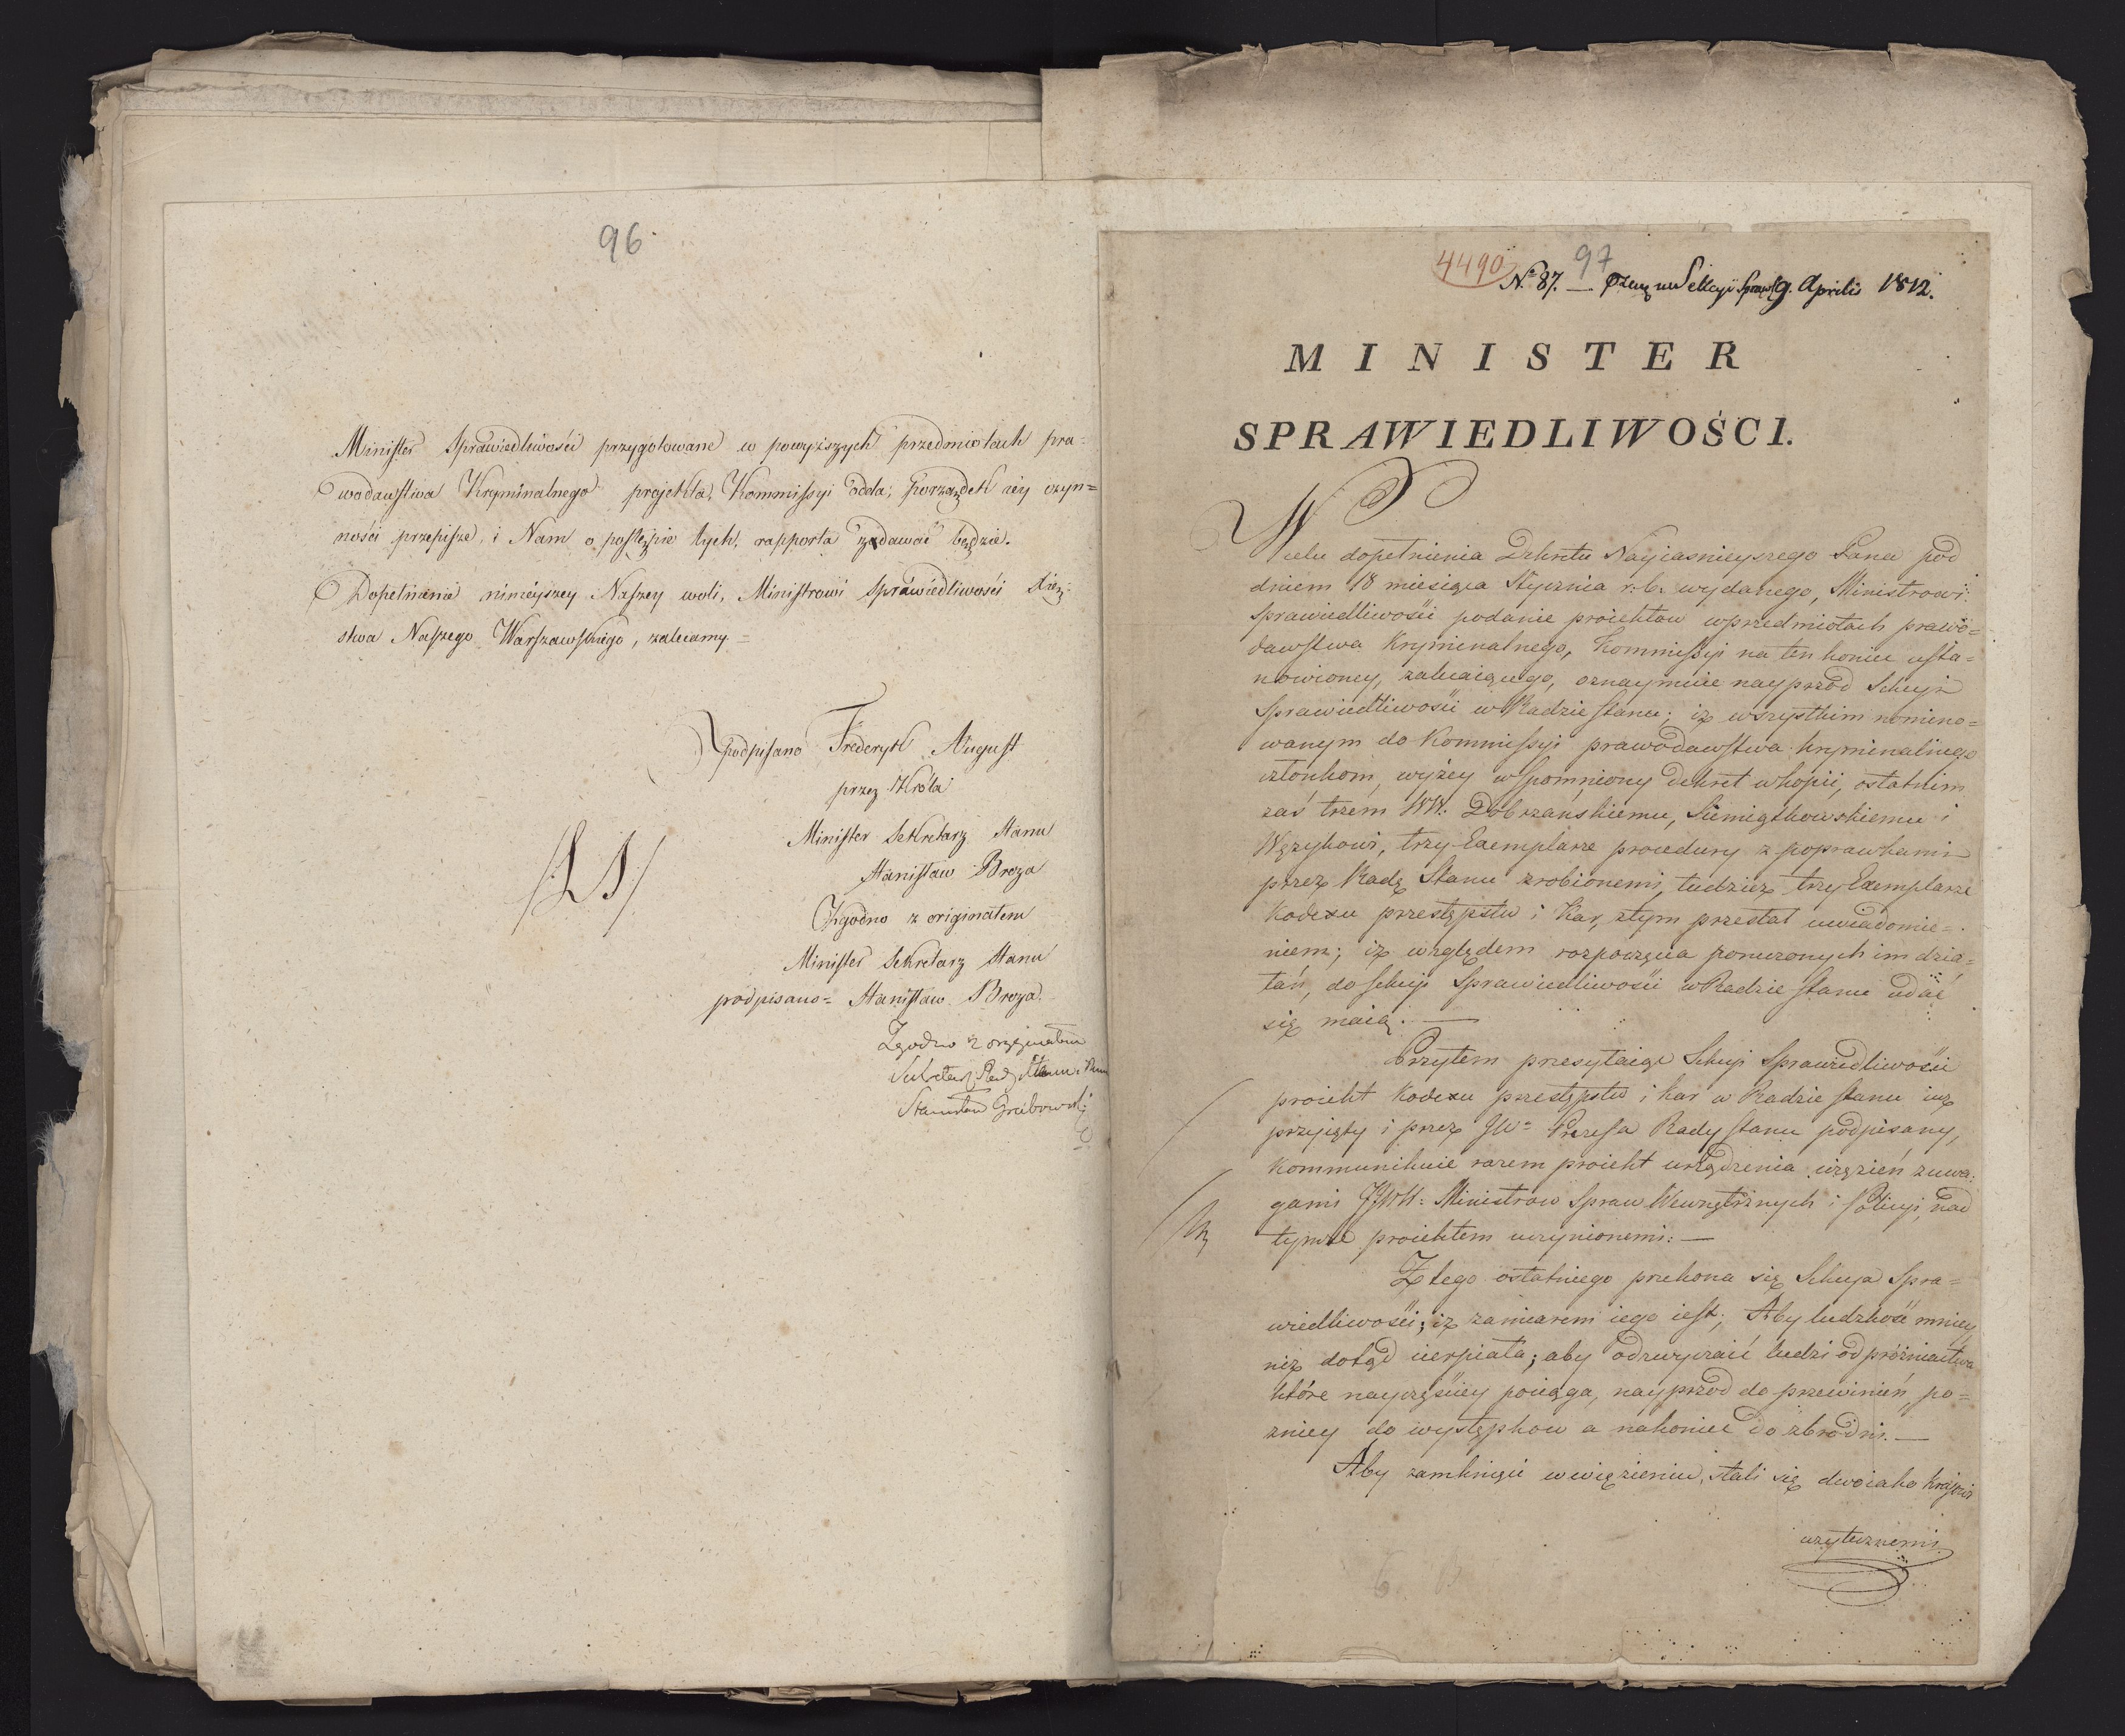 96
Minister Sprawiedliwości przygotowane w powyższych przedmiotach pra=
wodawstwa Kryminalnego projekta, Kommissyi odda, porządek iéy czyn=
ności przepisze, i Nam o postępie tych, rapporta zdawać będzie.
Dopełnienie ninieyszey Naszey woli, Ministrowi Sprawiedliwości Xięz=
stwa Naszego Warszawskiego, zalecamy =
podpisano Frederyk August
przez Króla
Minister Sekretarz Stanu
Stanisław Breza
/LS/
Zgodno z originałem
Minister Sekretarz Stanu
podpisano = Stanisław Breza.
Zgodno z oryginałem
Sekretarz Rady Stanu
Stanisław Grabowski
4490 97
No 87. — Sekcyi Spraw 9. Aprilis 1812.
MINISTER
SPRAWIEDLIWOŚCI.
W celu dopełnienia Dekretu Nayiasnieyszego Pana pod
dniem 18 miesiąca Stycznia r: b: wydanego, Ministrowi
Sprawiedliwości podanie proiektow w przedmiotach prawo=
dawstwa Kryminalnego, Kommissyi na ten koniec usta=
nowioney, zalecaiącego, oznaymuie nayprzód Sekcyi
Sprawiedliwości w Radzie Stanu; iż wszystkim nomino=
wanym do Kommissyi prawodawstwa kryminalnego
członkom, wyżey wspomniony dekret w kopii, ostatnim
zaś trzem WW: Dobrzańskiemu, Siemiątkowskiemu i
Wężykowi, trzy Exemplarze procedury z poprawkami
przez Radę Stanu zrobionemi, tudzież trzy Exemplarze
Kodexu przestępstw i Kar, z tym przesłał uwiadomie=
niem; iż względem rozpoczęcia poruczonych im dzia=
łań, do Sekcyi Sprawiedliwości w Radzie Stanu udać
się maią. —
Przytem przesyłaiąc Sekcyi Sprawiedliwości
proiekt Kodexu przestępstw i kar w Radzie Stanu iuż
przyięty i przez JW= Prezesa Rady Stanu podpisany,
Kommunikuie razem proiekt urządzenia więzień z uwa=
gami JJWW: Ministrow Spraw Wewnętrznych i Policyi, nad
tymże proiektem uczynionemi: —
Z tego ostatniego przekona się Sekcya Spra=
wiedliwości; iż zamiarem iego iest; Aby ludzkość mniey
niż dotąd cierpiała; aby odzwyczaić ludzi od próżniactwa
które nayczęściey pociąga, nayprzód do przewinień, po=
zniey do występkow a nakoniec do zbrodni. —
Aby zamknięci w więzieniu, stali się dwoiako Kraiowi
użytecznemi